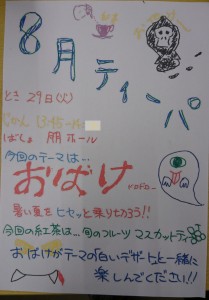 8月ティーパー
とき 29日(火)
じかん
ばしょ 朋ホール
今回のテーマは…
おばけ
暑い夏をヒヤッと乗り切ろう!!
今回の紅茶は…旬のフルーツ マスカットティー
おばけがテーマの「白いデザート」と一緒に
楽しんでください!!